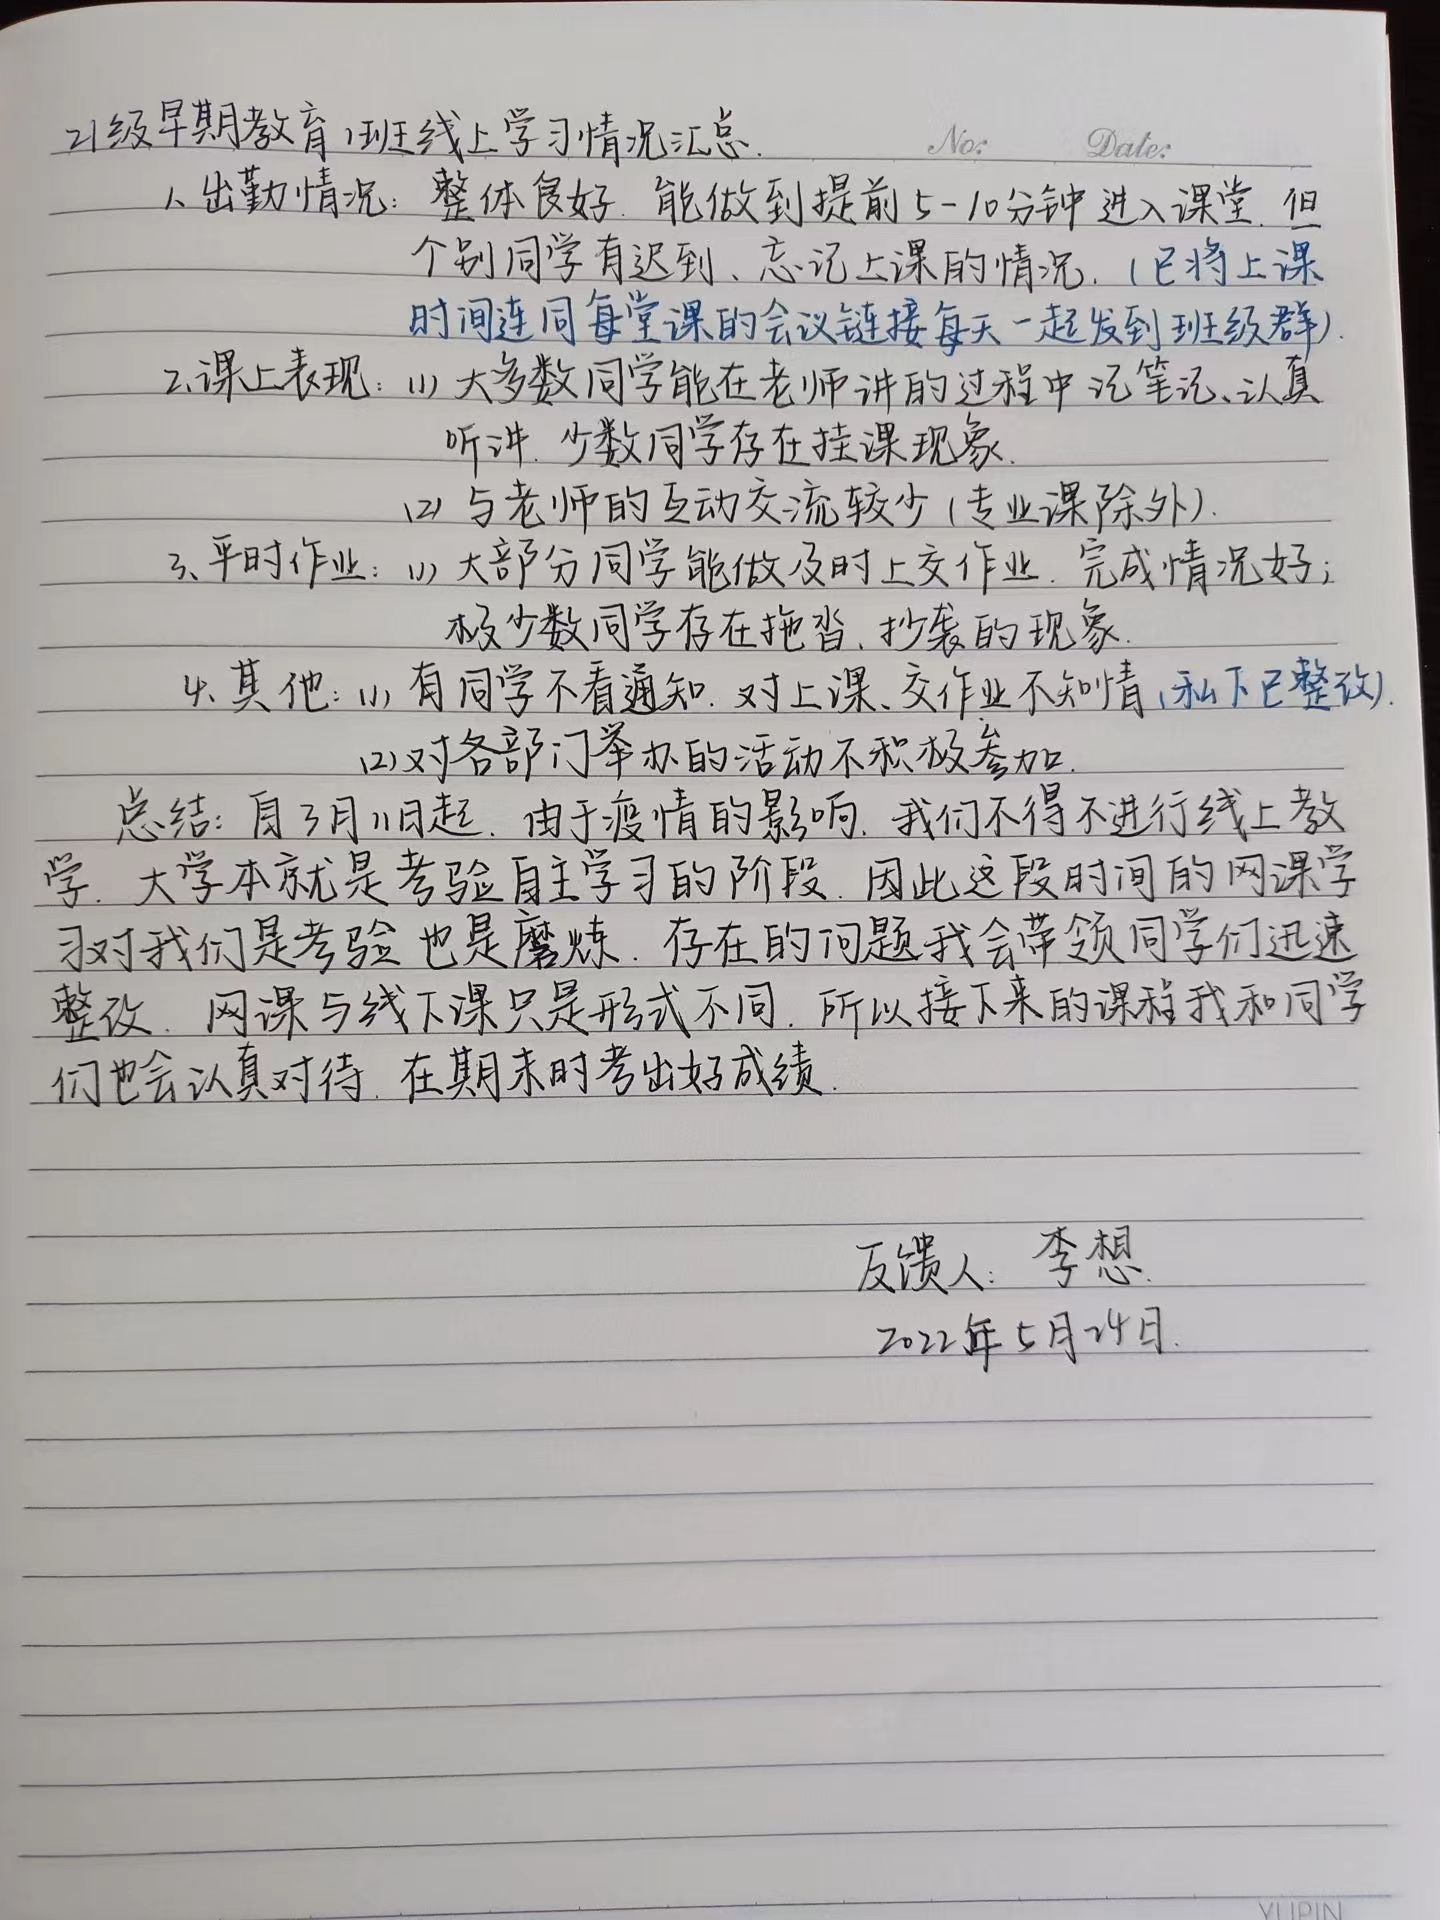 21级早期教育1班线上学习情况汇总.
No: Date:
1、出勤情况：整体良好. 能做到提前5-10分钟进入课堂. 但
个别同学有迟到、忘记上课的情况.（已将上课
时间连同每堂课的会议链接每天一起发到班级群）.
2、课上表现：(1) 大多数同学能在老师讲的过程中记笔记、认真
听讲. 少数同学存在挂课现象.
(2) 与老师的互动交流较少（专业课除外）.
3、平时作业：(1) 大部分同学能做及时上交作业. 完成情况好；
极少数同学存在拖沓、抄袭的现象.
4、其他：(1) 有同学不看通知. 对上课、交作业不知情（私下已整改）.
(2) 对各部门举办的活动不积极参加.
总结：自3月11日起. 由于疫情的影响. 我们不得不进行线上教
学. 大学本就是考验自主学习的阶段. 因此这段时间的网课学
习对我们是考验也是磨炼. 存在的问题我会带领同学们迅速
整改. 网课与线下课只是形式不同. 所以接下来的课程我和同学
们也会认真对待. 在期末时考出好成绩.
反馈人：李想.
2022年5月24日.
YUPIN